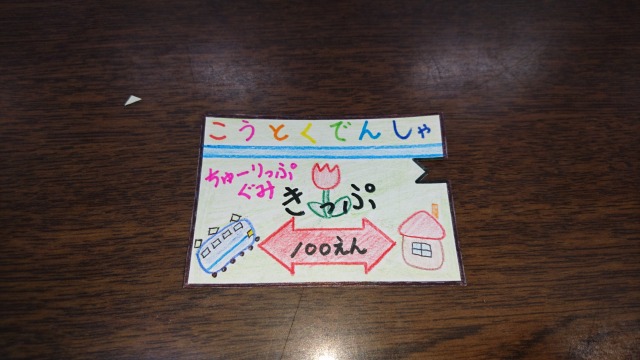 こうとくでんしゃ
ちゅーりっぷ
ぐみ
きっぷ
100えん